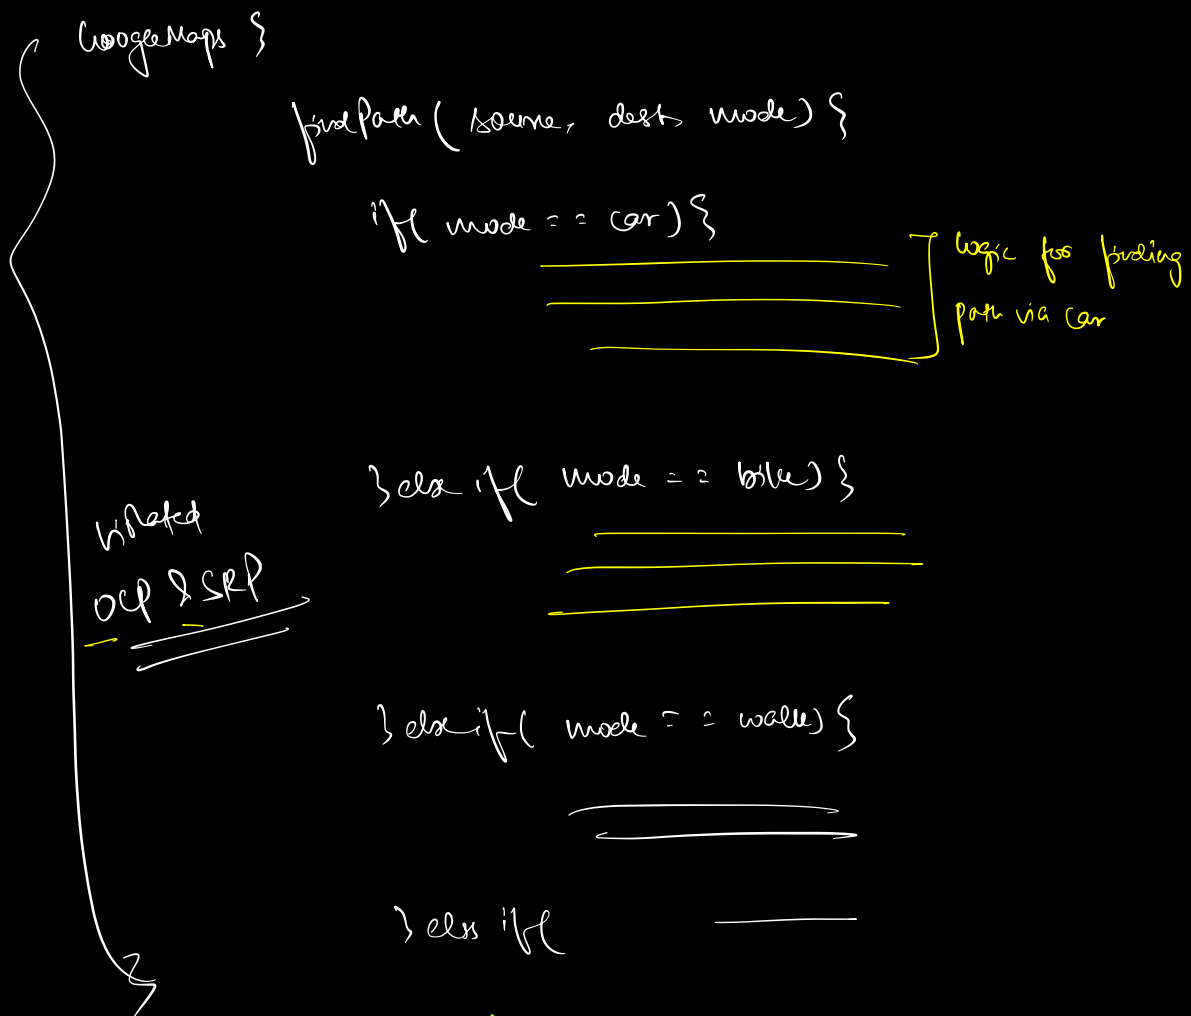 GoogleMaps {
findPath( source, dest, mode) {
if( mode == car) {
logic for finding
path via car
} else if( mode == bike) {
violated
OCP & SRP
} else if( mode == walk) {
} else if(
}